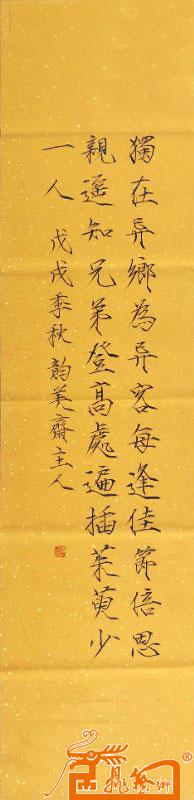 獨在异鄉為异客每逢佳節倍思
親遥知兄弟登高處遍插茱萸少
一人
戊戌季秋韵美齋主人